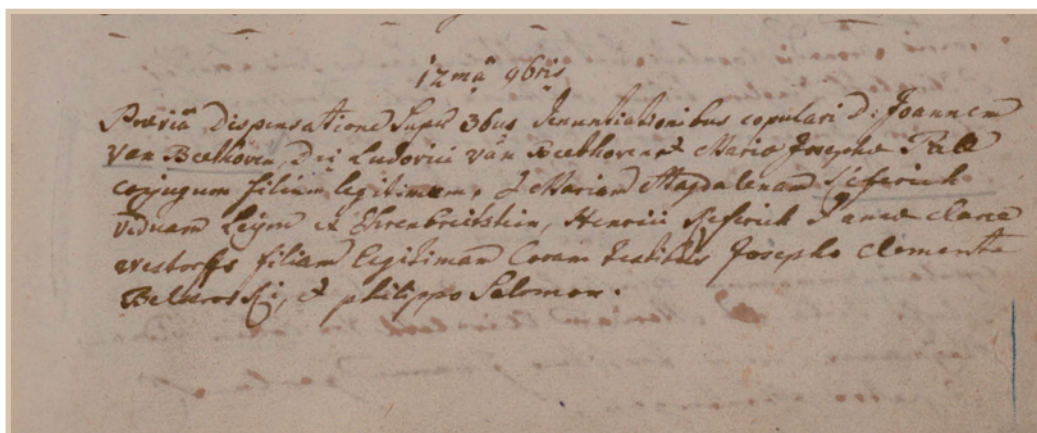 12mâ 9bris
Præviâ dispensatione super 3bus denuntiationibus copulavi D: Joannem
van Beethoven, Dni Ludovici van Beethoven & Mariæ Josephæ
conjugum filium legitimum, & Mariam Magdalenam Keferich
viduam Leÿm ex Ehrenbreitstein, Henrici Keferich & annæ claræ
westorffs filiam legitimam Coram testibus Josepho clemente
Belseroski, & philippo Salomon.